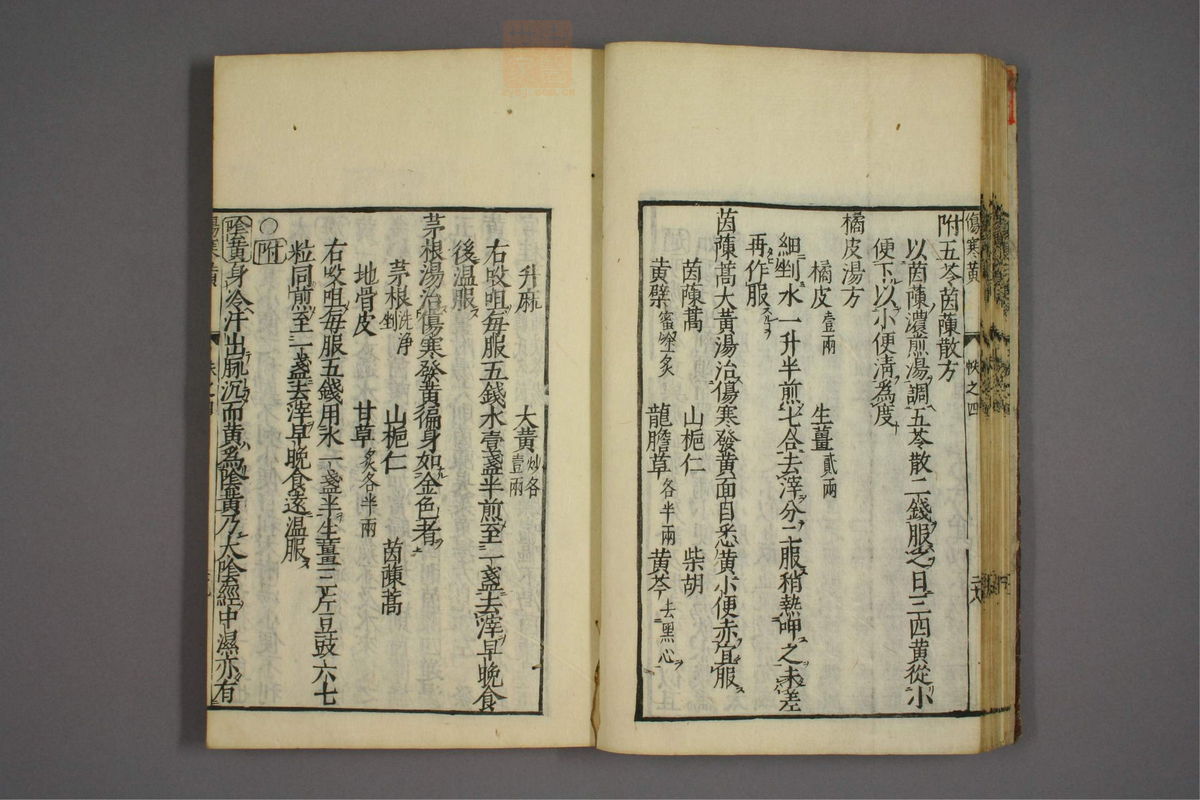 傷寒黄
帙之四
附五苓茵蔯散方
以茵蔯濃煎湯調五苓散二錢服之日三四黄從小
便下以小便清為度
橘皮湯方
橘皮壹兩 生薑貳兩
細剉水一升半煎七合去滓分二服稍熱呷之未差
再作服
茵蔯蒿大黄湯治傷寒發黄面目悉黄小便赤宜服
茵蔯蒿 山梔仁 柴胡
黄檗蜜塗炙 龍膽草各半兩 黄芩去黑心
升麻 大黄炒各壹兩
右㕮咀每服五錢水壹盞半煎至一盞去滓早晚食
後温服
茅根湯治傷寒發黄徧身如金色者
茅根洗浄剉 山梔仁 茵蔯蒿
地骨皮 甘草炙各半兩
右㕮咀每服五錢用水一盞半生薑三片豆豉六七
粒同煎至一盞去滓早晚食遠温服
○附
陰黄身冷汗出脈沉而黄名陰黄乃太陰經中濕亦有
傷寒黄
帙之四